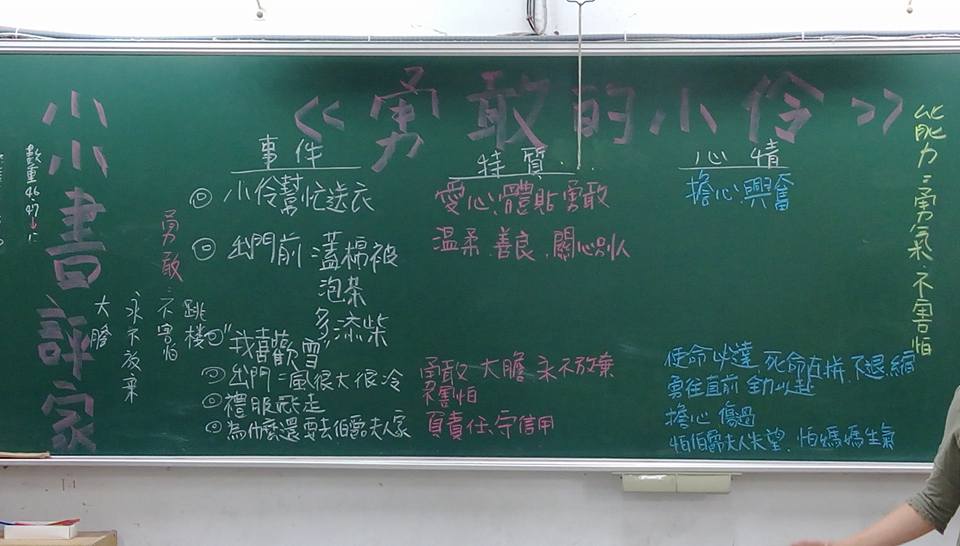 小小書評家
《勇敢的小伶》
能力:勇氣.不害怕
數重46.47
勇敢:不害怕
永不放棄
大膽
跳樓
事件
◎小伶幫忙送衣
◎出門前 蓋棉被
泡茶
多添柴
◎"我喜歡雪"
◎出門:風很大很冷
◎禮服飛走
◎為什麼還要去伯爵夫人家
特質
愛心、體貼勇敢
溫柔.善良.關心別人
勇敢、大膽、永不放棄
不害怕
負責任、守信用
心情
擔心、興奮
使命必達 死命在拚.不退縮
勇往直前 全力以赴
擔心 傷過
怕伯爵夫人失望.怕媽媽生氣